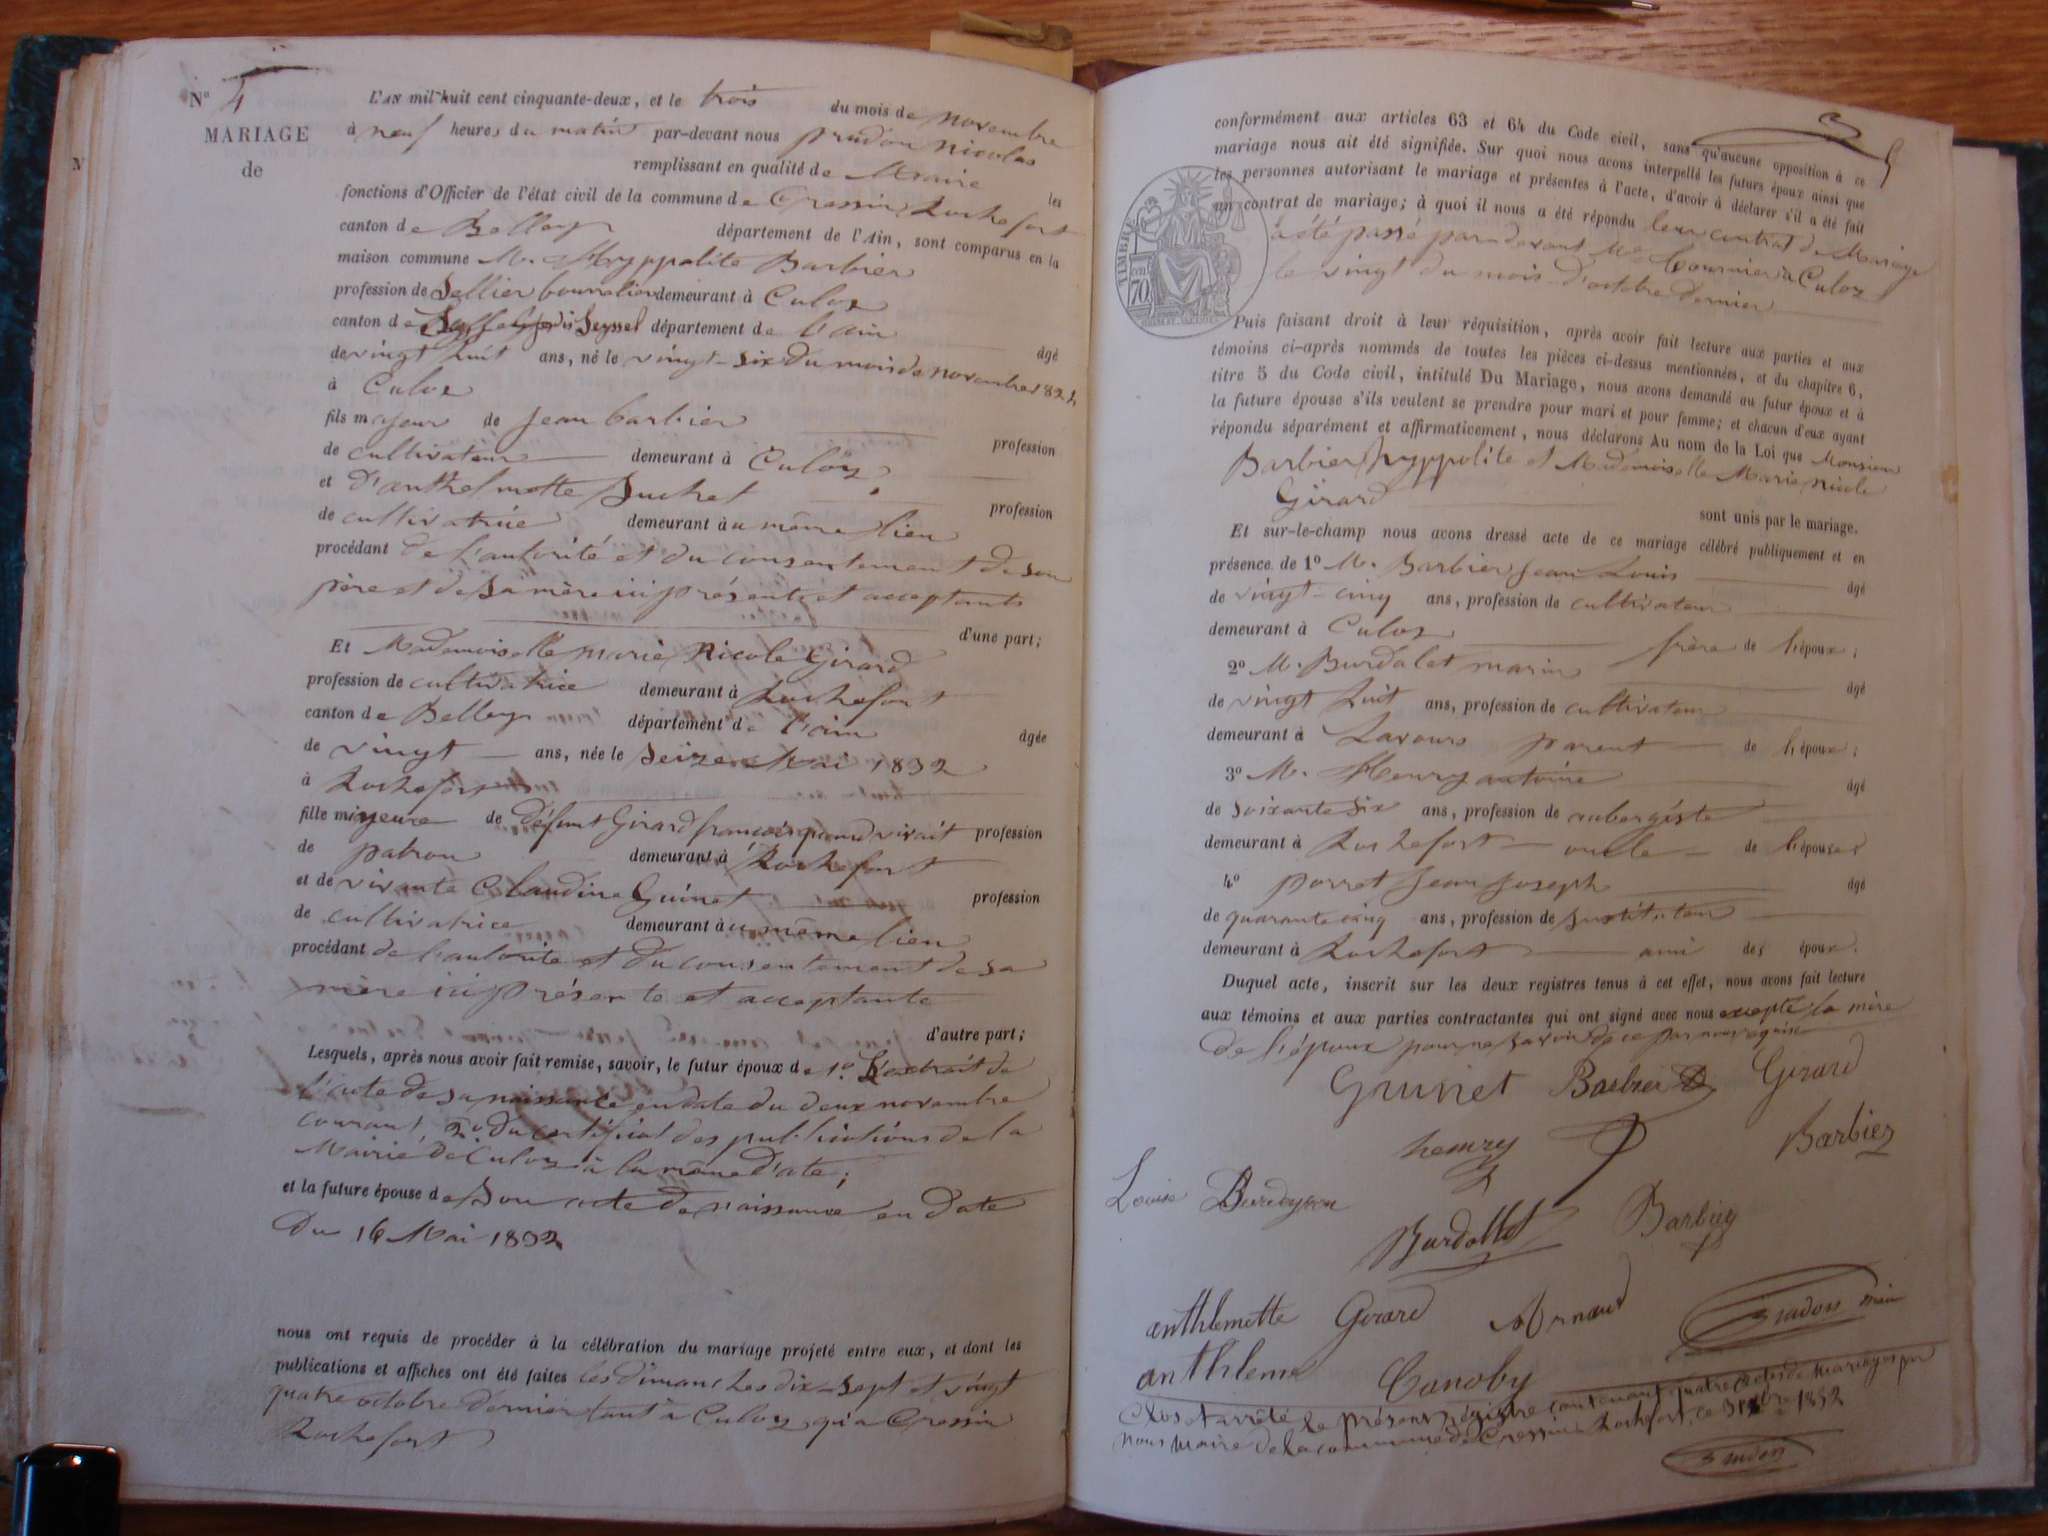 N° 4
MARIAGE
de
L'AN mil huit cent cinquante-deux, et le trois du mois de novembre
à neuf heures du matin par-devant nous prudon nicolas
remplissant en qualité de Maire les
fonctions d'Officier de l'état civil de la commune de Cressin Rochefort
canton de Belley département de l'Ain, sont comparus en la
maison commune M. Hyppolite Barbier
profession de Sellier bourrelier demeurant à Culoz
canton de Seyssel département de l'ain âgé
de vingt huit ans, né le vingt-six du mois de novembre 1824
à Culoz
fils majeur de Jean barbier profession
de cultivateur demeurant à Culoz
et d'anthelmette Suchet profession
de cultivatrice demeurant au même lieu
procédant de l'autorité et du consentement de son
père et de sa mère ici présents et acceptants
d'une part;
Et Mademoiselle marie Nicole Girard
profession de cultivatrice demeurant à Rochefort
canton de Belley département de l'ain âgée
de vingt ans, née le Seize Mai 1832
à Rochefort
fille mineure de défunt Girard françois quand vivait profession
de patron demeurant à Rochefort
et de vivante Claudine Guinet profession
de cultivatrice demeurant au même lieu
procédant de l'autorité et du consentement de sa
mère ici présente et acceptante
d'autre part;
Lesquels, après nous avoir fait remise, savoir, le futur époux de 1° L'extrait de
l'acte de sa naissance en date du deux novembre
courant 2° du certificat des publications de la
Mairie de Culoz à la même date;
et la future épouse de Son acte de naissance en date
Du 16 Mai 1832
nous ont requis de procéder à la célébration du mariage projeté entre eux, et dont les
publications et affiches ont été faites les dimanches dix-sept et vingt
quatre octobre dernier tant à Culoz qu'a Cressin
Rochefort
conformément aux articles 63 et 64 du Code civil, sans qu'aucune opposition à ce
mariage nous ait été signifiée. Sur quoi nous avons interpellé les futurs époux ainsi que
les personnes autorisant le mariage et présentes à l'acte, d'avoir à déclarer s'il a été fait
un contrat de mariage; à quoi il nous a été répondu leur contrat de Mariage
a été passé par devant Me Cournier à Culoz
le vingt du mois d'octobre dernier
TIMBRE
70
Puis faisant droit à leur réquisition, après avoir fait lecture aux parties et aux
témoins ci-après nommés de toutes les pièces ci-dessus mentionnées, et du chapitre 6,
titre 5 du Code civil, intitulé Du Mariage, nous avons demandé au futur époux et à
la future épouse s'ils veulent se prendre pour mari et pour femme; et chacun d'eux ayant
répondu séparément et affirmativement, nous déclarons Au nom de la Loi que Monsieur
Barbier hyppolite et Mademoiselle Marie Nicole
Girard
sont unis par le mariage.
Et sur-le-champ nous avons dressé acte de ce mariage célébré publiquement et en
présence de 1° M. Barbier Jean Louis âgé
de vingt-cinq ans, profession de cultivateur
demeurant à Culoz frère de l'époux;
2° M. Burdalet marin âgé
de vingt huit ans, profession de cultivateur
demeurant à Lavours parent de l'époux;
3° M. Henry antoine âgé
de soixante six ans, profession de aubergiste
demeurant à Rochefort oncle de l'épouse;
4° porret Jean Joseph âgé
de quarante cinq ans, profession de Instituteur
demeurant à Rochefort ami des époux.
Duquel acte, inscrit sur les deux registres tenus à cet effet, nous avons fait lecture
aux témoins et aux parties contractantes qui ont signé avec nous excepté la mère
de l'époux pour ne savoir de ce par nous requise
Guinet Barbier Girard
henry Barbier
Louise
Burdallet Barbier
anthlemette Girard Arnaud Prudon maire
anthleme Canoby
Clos et arrêté le présent régistre contenant quatre actes de Mariages par
nous Maire de la commune de Cressin Rochefort, ce 31 Xbre 1852
Prudon